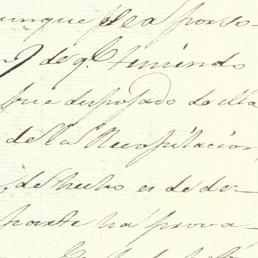 unque sea por so-
y de q.e teniendo
fue despojado de ella
de la Recopilacion
, de hecho es de de-
parte há prova-